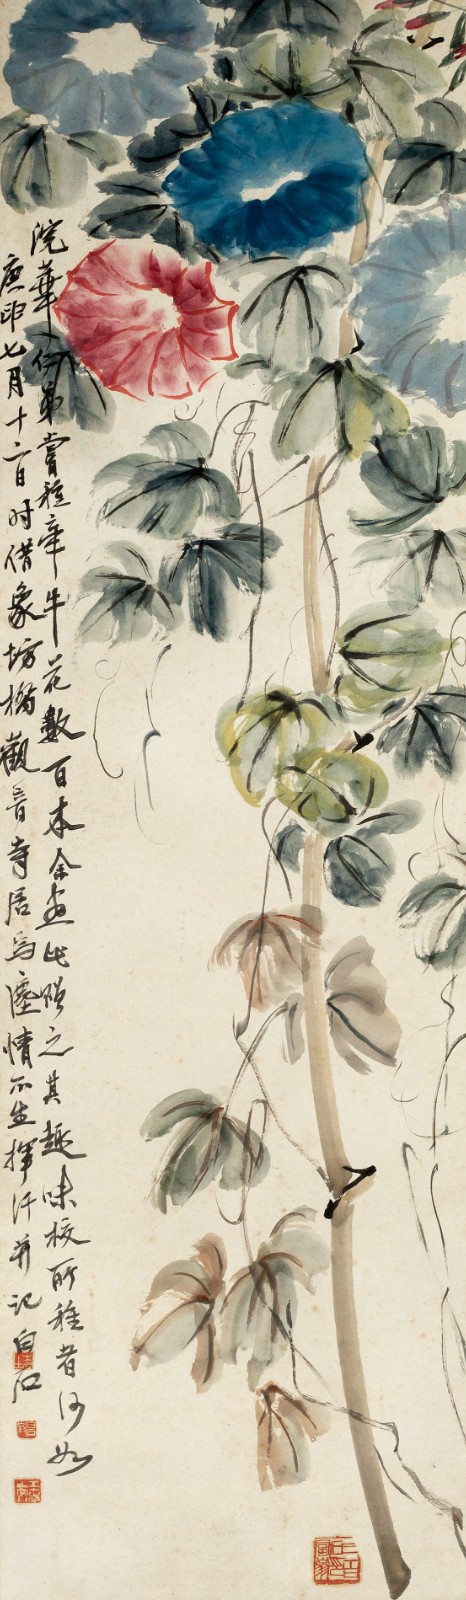 浣華仁弟嘗種牽牛花數百本余畫此贈之其趣味校所種者何如
庚申七月十二日时借象坊橋觀音寺居焉塵情不生揮汗并記白石